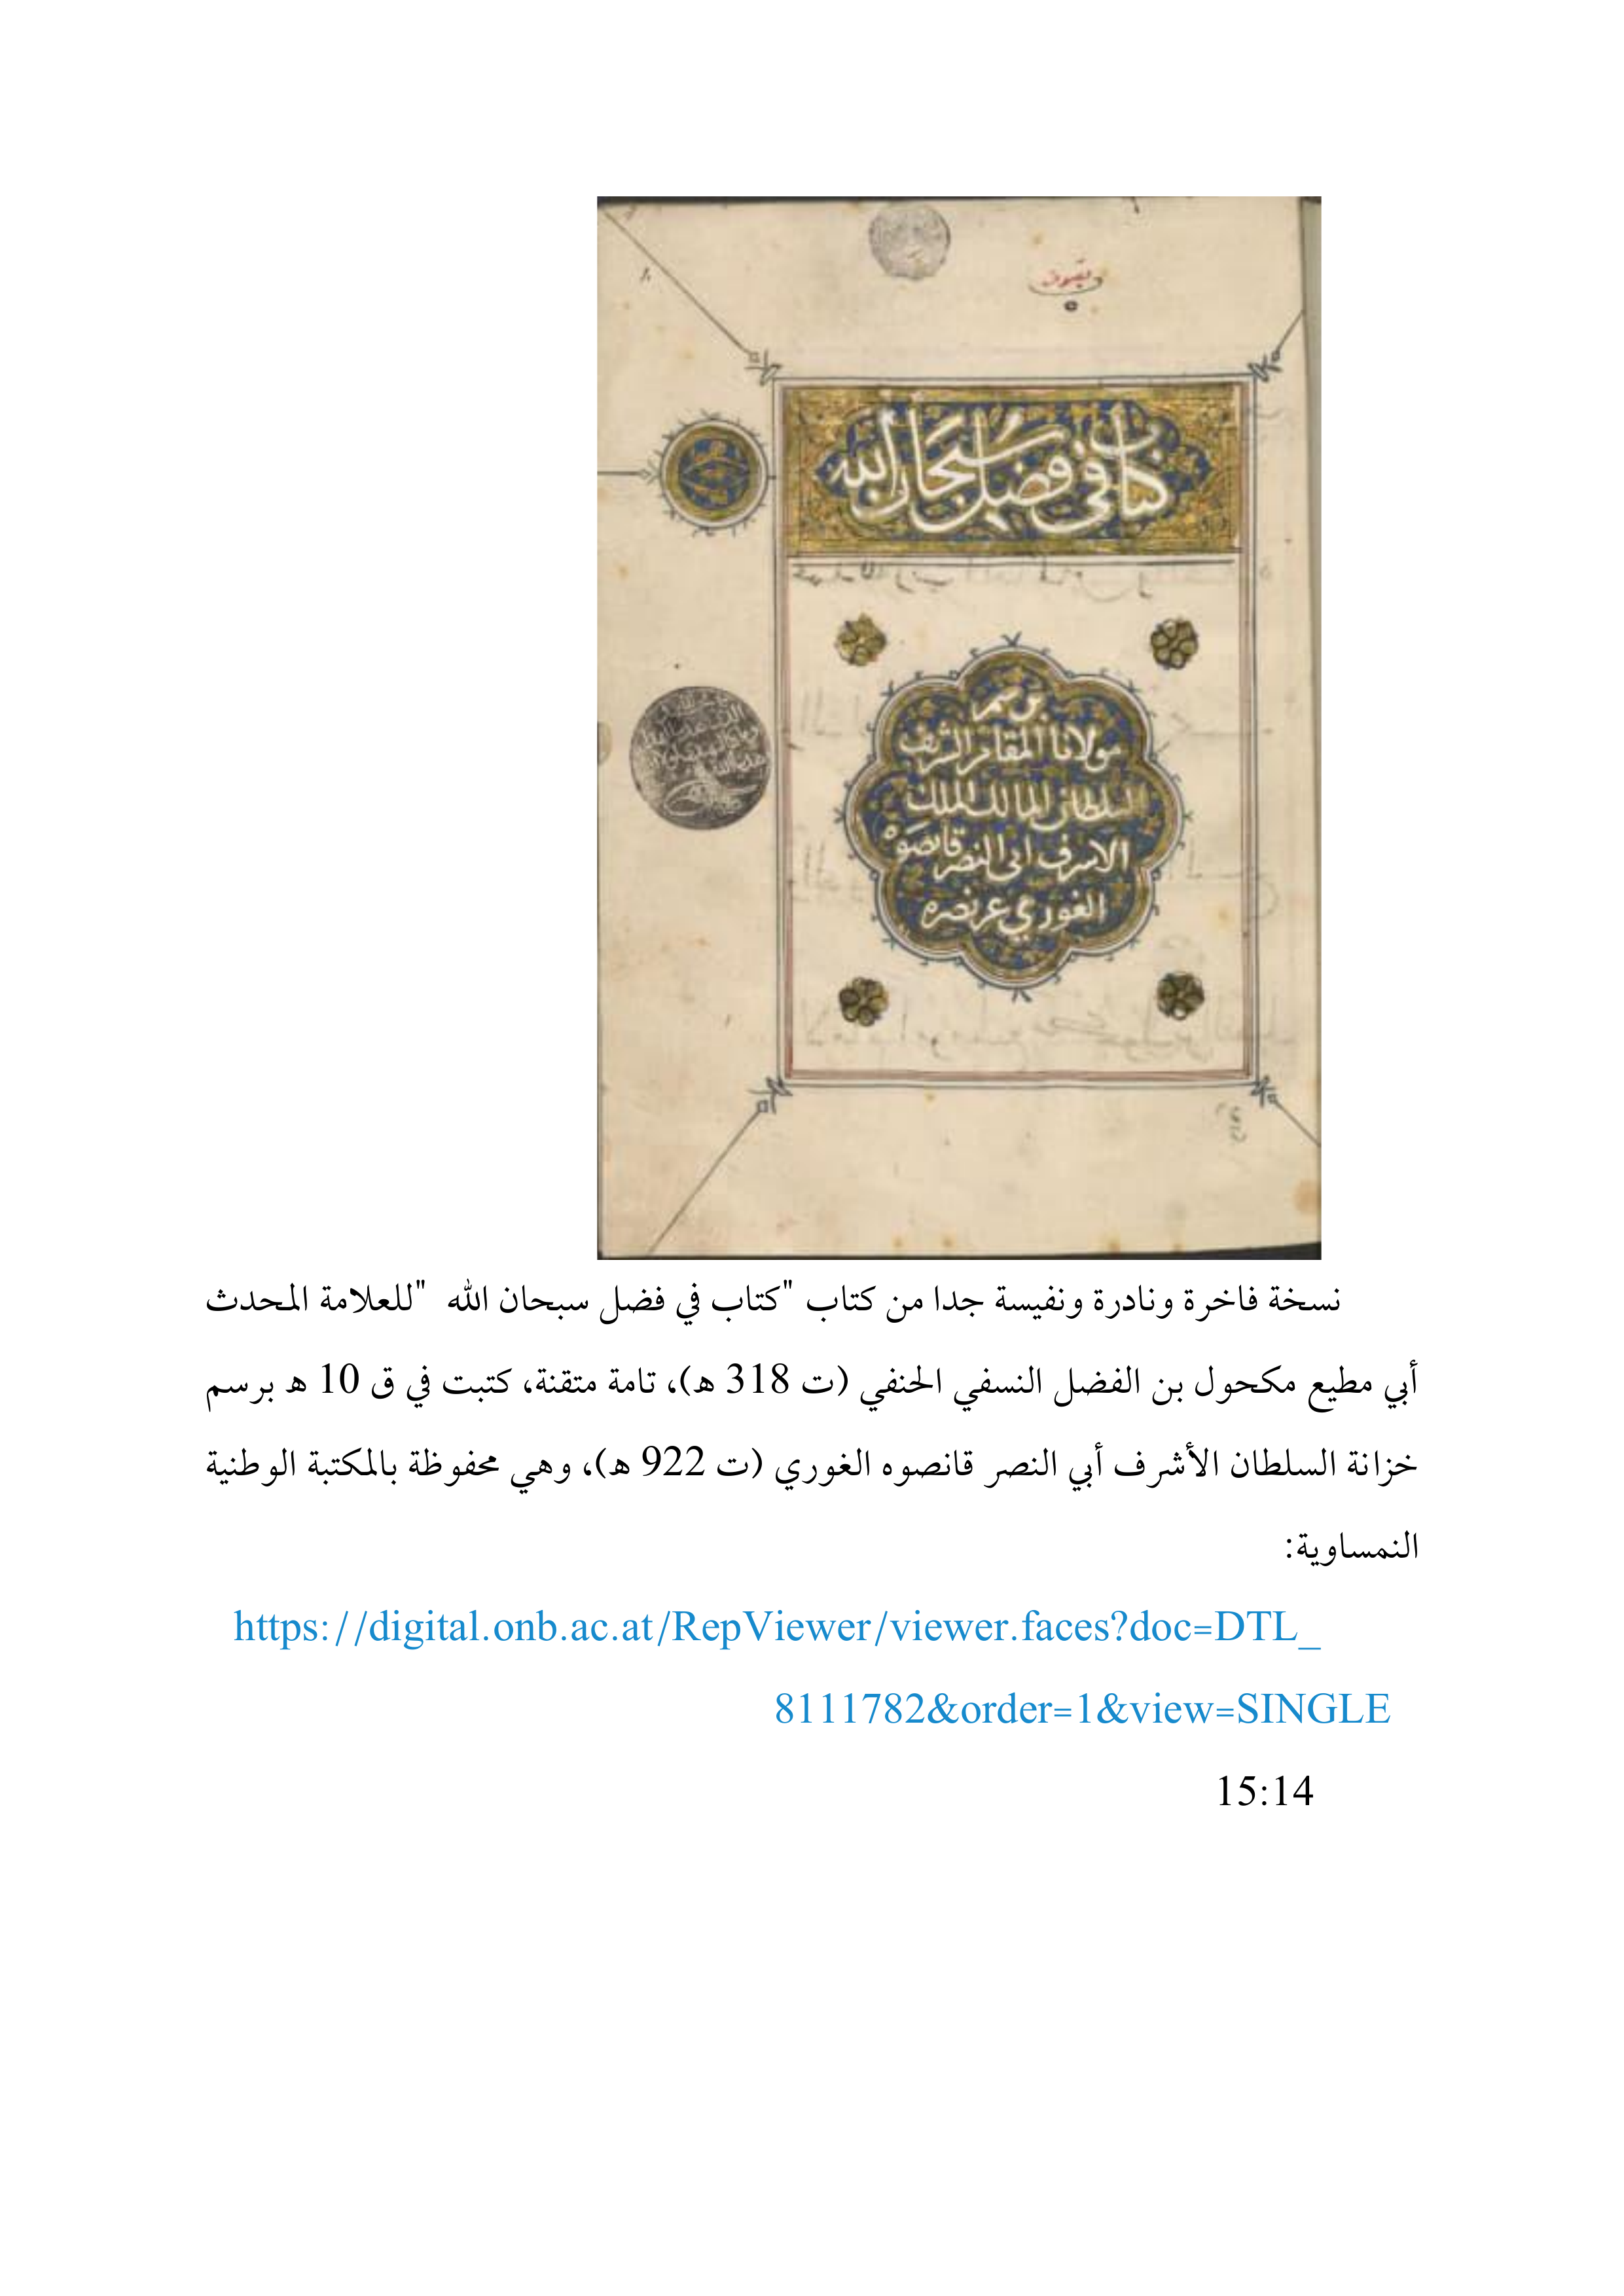 كتاب في فضل سبحان الله
برسم
مولانا المقام الشريف
السلطان المالك الملك
الاشرف ابى النصر قانصوه
الغوري عز نصره
نسخة فاخرة ونادرة ونفيسة جدا من كتاب "كتاب في فضل سبحان الله "للعلامة المحدث
أبي مطيع مكحول بن الفضل النسفي الحنفي (ت 318 ه)، تامة متقنة، كتبت في ق 10 ه برسم
خزانة السلطان الأشرف أبي النصر قانصوه الغوري (ت 922 ه)، وهي محفوظة بالمكتبة الوطنية
النمساوية:
https://digital.onb.ac.at/RepViewer/viewer.faces?doc=DTL_
8111782&order=1&view=SINGLE
15:14